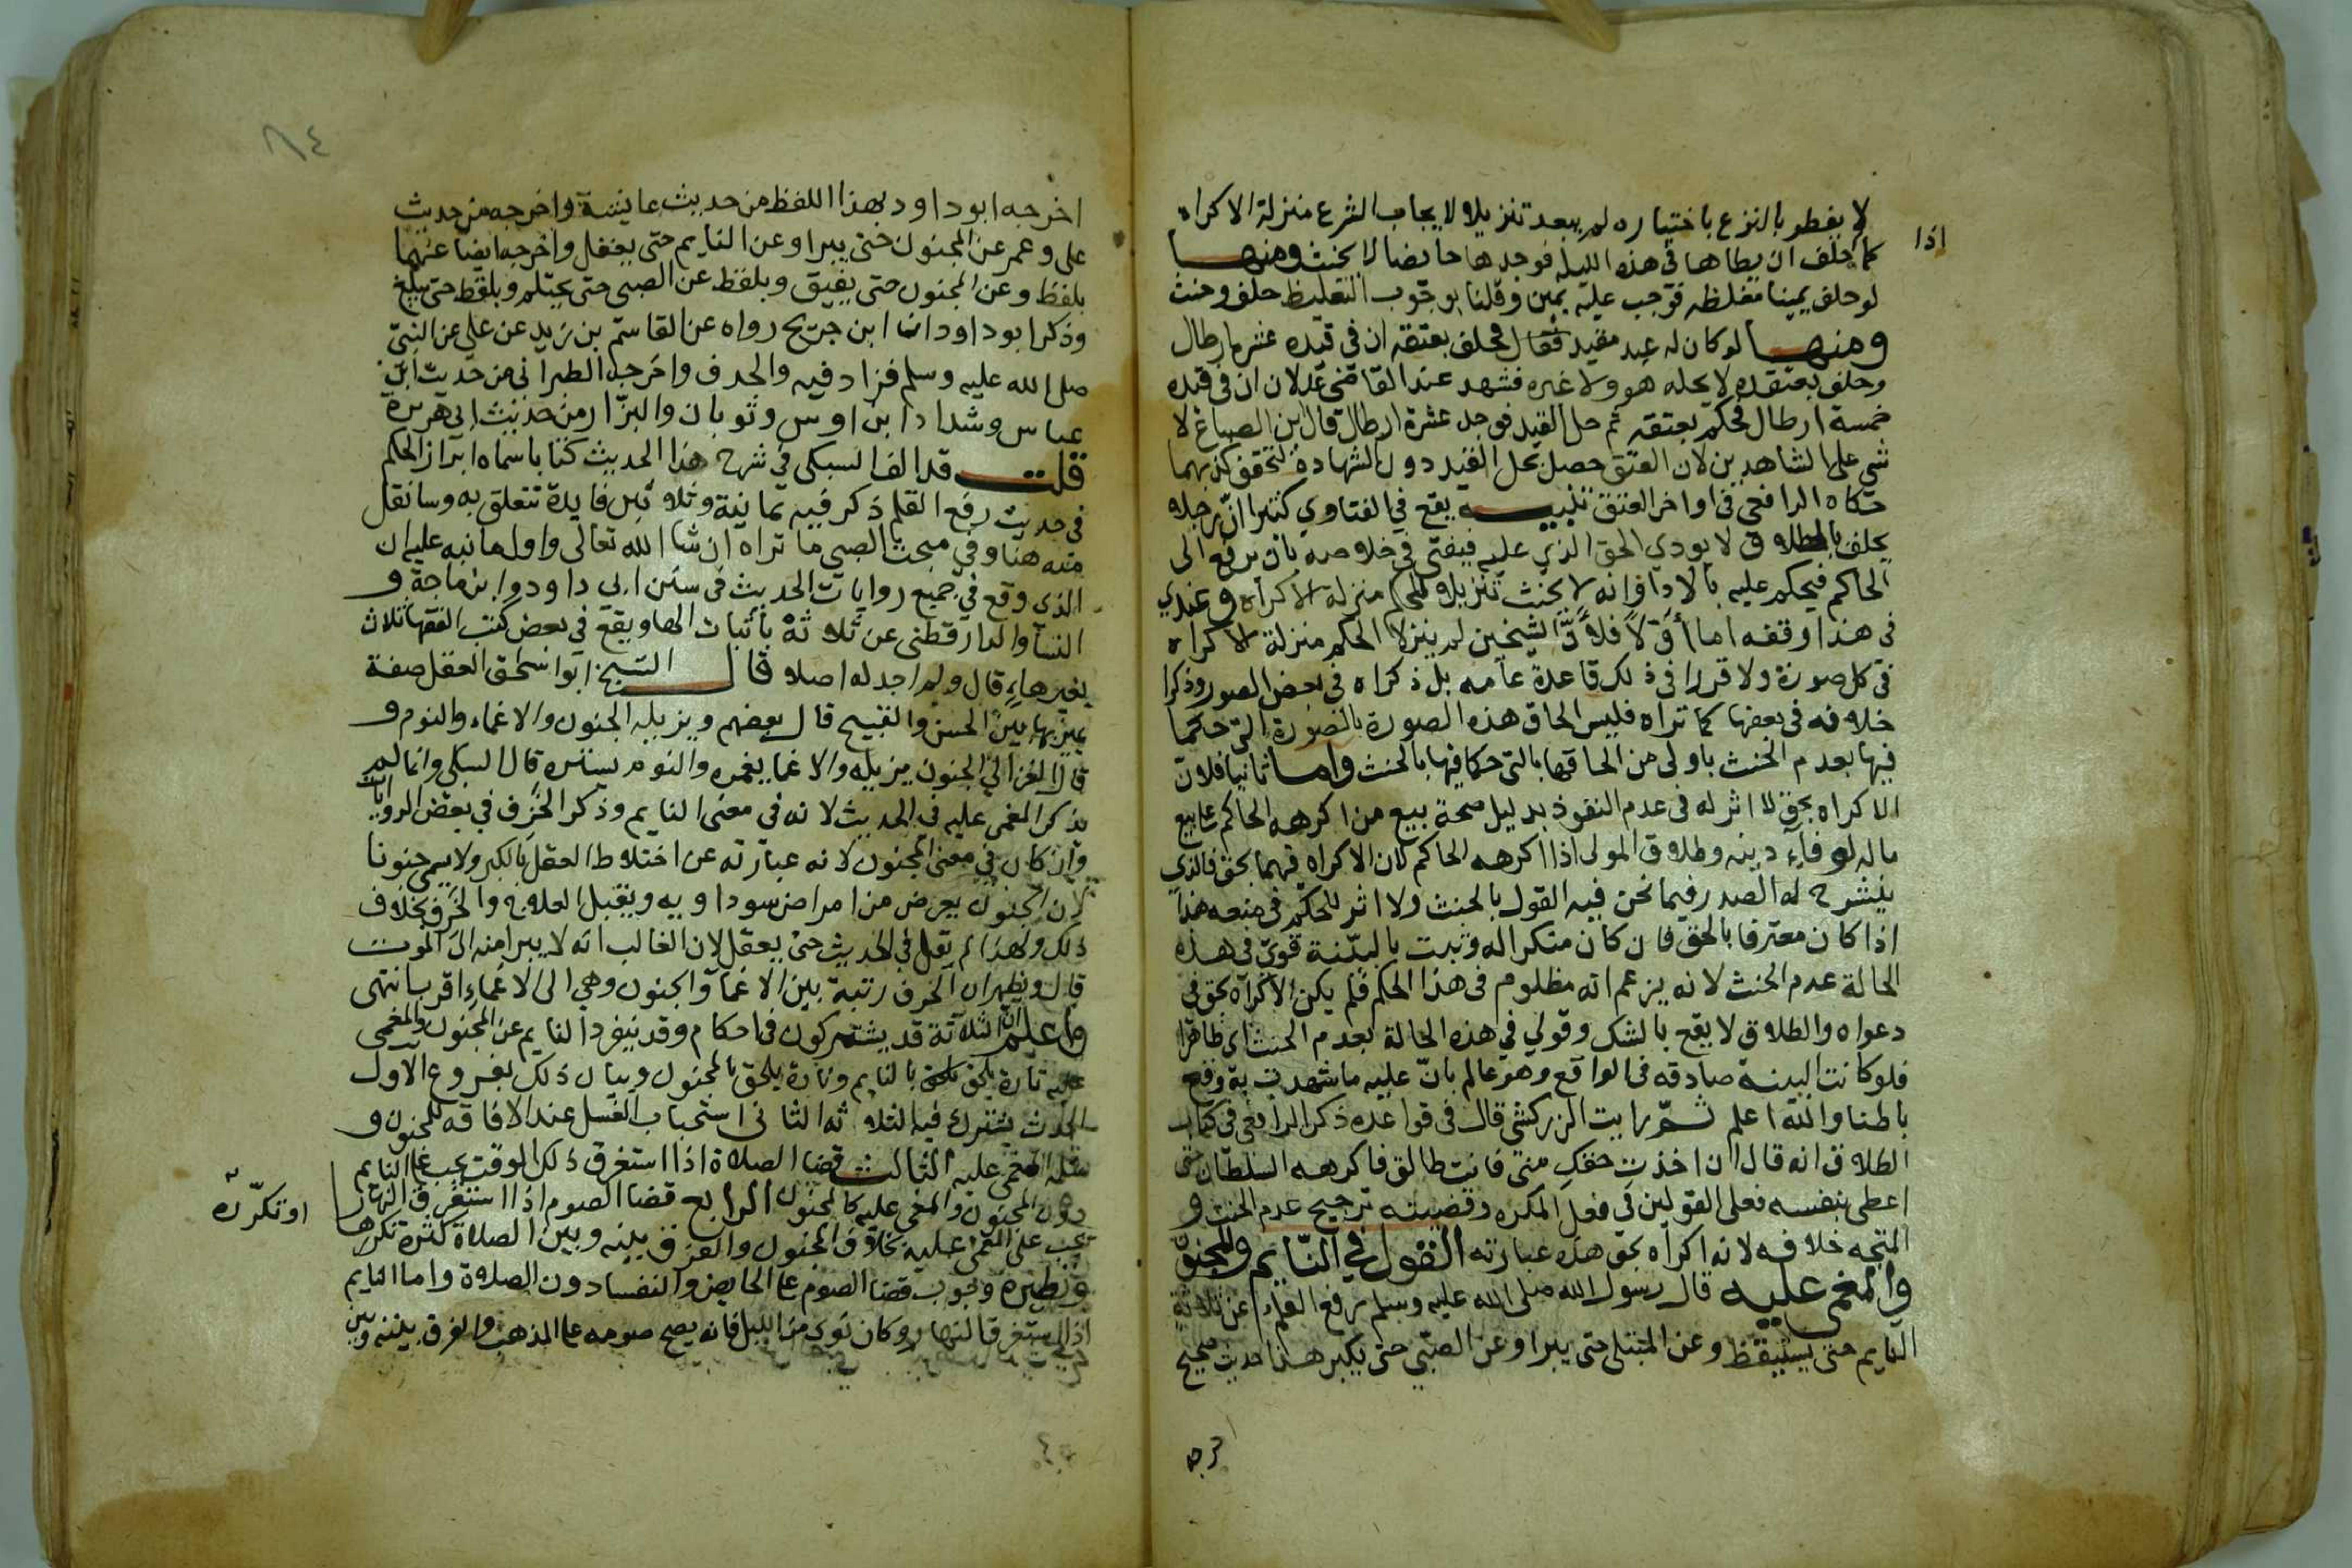 لا يفطر بالنزع باختياره لم يبعد تنزيلا لايجاب الشرع منزلة الاكراه
اذا
كما حلف ان يطاها في هذه الليلة فوجدها حايضا لا يحنث ومنهـــا
لو حلف يمينا مغلظه فوجب عليه يمين وقلنا بوجوب التغليظ حلف وحنث
ومنهـــا لو كان له عبد مقيد فقال محلف بعتقه ان في قيده عشرة ارطال
وحلف بعتقه لا يحله هو ولا غيره فشهد عند القاضي عدلان ان في قيده
خمسة ارطال فحكم بعتقه ثم حل القيد فوجد عشرة ارطال قال ابن الصباغ لا
شي على الشاهدين لان العتق حصل بحل القيد دون الشهادة لتحقق كذبهما
حكاه الرافعي في اواخر العتق تنبيـــه يقع في الفتاوي كثيرا ان رجلا
يحلف بالطلاق لا يودي الحق الذي عليه فيفتى في خلاصه بان يرفع الى
الحاكم فيحكم عليه بالادا وانه لا يحنث تنزيلا للحكم منزلة الاكراه وعندي
في هذا وقفه اما اولا فلان الشيخين لم ينزلا الحكم منزلة الاكراه
في كل صورة ولا قررا في ذلك قاعدة عامه بل ذكراه في بعض الصور وذكرا
خلافه في بعضها كما تراه فليس الحاق هذه الصورة بالصورة التي حكما
فيها بعدم الحنث باولى من الحاقها بالتي حكما فيها بالحنث واما ثانيا فلان
الاكراه بحق لا اثر له في عدم النفوذ بدليل صحة بيع من اكرهه الحاكم على بيع
ماله لوفاء دينه وطلاق المولى اذا اكرهه الحاكم لان الاكراه فيهما بحق فالذي
ينشرح له الصدر فيما نحن فيه القول بالحنث ولا اثر للحكم في منعه هذا
اذا كان معترفا بالحق فان كان منكرا له وثبت بالبينة قوي في هذه
الحالة عدم الحنث لانه يزعم انه مظلوم في هذا الحكم فلم يكن الاكراه بحق في
دعواه والطلاق لا يقع بالشك وقولي في هذه الحالة بعدم الحنث اي ظاهرا
فلو كانت البينة صادقه في الواقع وهو عالم بان عليه ما شهدت به وقع
باطنا والله اعلم ثـم رايت الزركشي قال في قواعده ذكر الرافعي في كتاب
الطلاق انه قال ان اخذت حقك مني فانت طالق فاكرهه السلطان حتى
اعطى بنفسه فعلى القولين في فعل المكره وقضيته ترجيح عدم الحنث و
المتجه خلافه لانه اكراه بحق هذه عبارته القول في النايم والمجنون
والمغمى عليه قال رسول الله صلى الله عليه وسلم رفع القلم عن ثلاثة
النايم حتى يستيقظ وعن المبتلى حتى يبرا وعن الصبي حتى يكبر هذا حديث صحيح
٨٤
اخرجه ابو داود بهذا اللفظ من حديث عايشة واخرجه من حديث
علي وعمر عن المجنون حتى يبرا وعن النايم حتى يعقل واخرجه ايضا عنهما
بلفظ وعن المجنون حتى يفيق وبلفظ عن الصبي حتى يحتلم وبلفظ حتى يبلغ
وذكر ابو داود ان ابن جريج رواه عن القاسم بن زيد عن علي عن النبي
صلى الله عليه وسلم فزاد فيه والخرف واخرجه الطبراني من حديث ابن
عباس وشداد ابن اوس وثوبان والبزار من حديث ابي هريرة
قلتـــ قد الف السبكي في شرح هذا الحديث كتابا سماه ابراز الحكم
في حديث رفع القلم ذكر فيه ثمانية وثلاثين فايدة تتعلق به وسانقل
منه هنا وفي مبحث الصبي ما تراه ان شا الله تعالى واول ما نبه عليه ان
الذي وقع في جميع روايات الحديث في سنن ابي داود وابن ماجة و
النسا والدارقطني عن ثلاثة باثبات الها ويقع في بعض كتب الفقها ثلاث
بغير هاء قال ولم اجد له اصلا قال الشيخ ابو اسحق العقل صفة
يميز بها بين الحسن والقبيح قال بعضهم ويزيله الجنون والاغماء والنوم و
قال الغزالي الجنون يزيله والاغما يغمره والنوم يستره قال السبكي وانما لم
يذكر المغمى عليه في الحديث لانه في معنى النايم وذكر الخرف في بعض الروايات
وان كان في معنى المجنون لانه عبارته عن اختلاط العقل بالكبر ولا يسمى جنونا
لان الجنون يعرض من امراض سوداويه ويقبل العلاج والخرف بخلاف
ذلك ولهذا لم يقل في الحديث حتى يعقل لان الغالب انه لا يبرا منه الى الموت
قال ويظهر ان الخرف رتبة بين الاغماء والجنون وهي الى الاغماء اقرب انتهى
واعلم ان الثلاثة قد يشتركون في احكام وقد ينفرد النايم عن المجنون والمغمى
عليه تارة يلحق بالنايم وتارة يلحق بالمجنون وبيان ذلك بفروع الاول
الحدث يشترك فيه الثلاثه الثاني استحباب الغسل عند الافاقه للمجنون و
مثله المغمى عليه الثالث قضا الصلاة اذا استغرق ذلك الوقت يجب على النايم
دون المجنون والمغمى عليه كالمجنون الرابع قضا الصوم اذا استغرق النهار
او تكرره
يجب على المغمى عليه بخلاف المجنون والفرق بينه وبين الصلاة كثرة تكررها
ونظيره وجوب قضا الصوم على الحايض والنفسا دون الصلاة واما النايم
اذا استغرق النهار وكان نوى من الليل فانه يصح صومه على المذهب والفرق بينه وبين